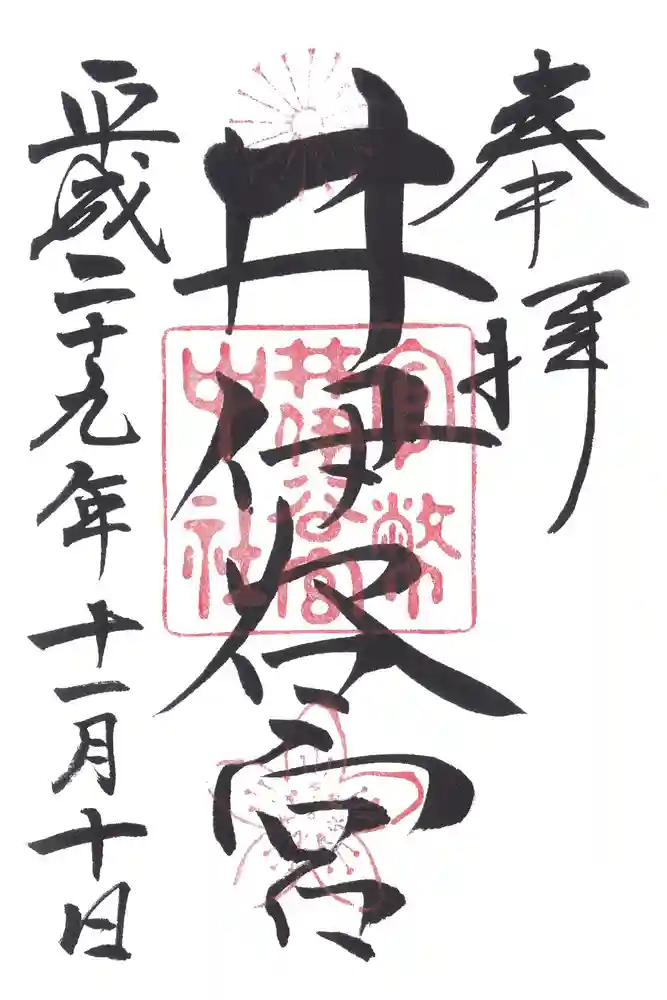 奉拝
井伊谷宮
平成二十九年十一月十日
官幣
井伊谷宮
中社